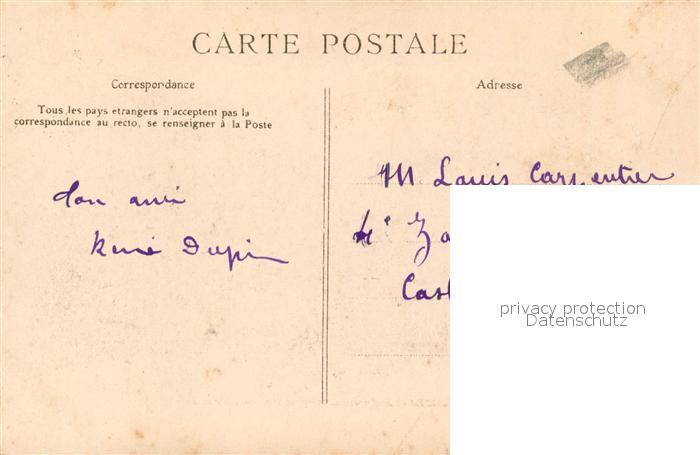 CARTE POSTALE
Correspondance
Tous les pays etrangers n'acceptent pas la
correspondance au recto, se renseigner à la Poste
Adresse
ton ami
René Dupin
M Louis Carpentier
4e Za
Cast
privacy protection
Datenschutz